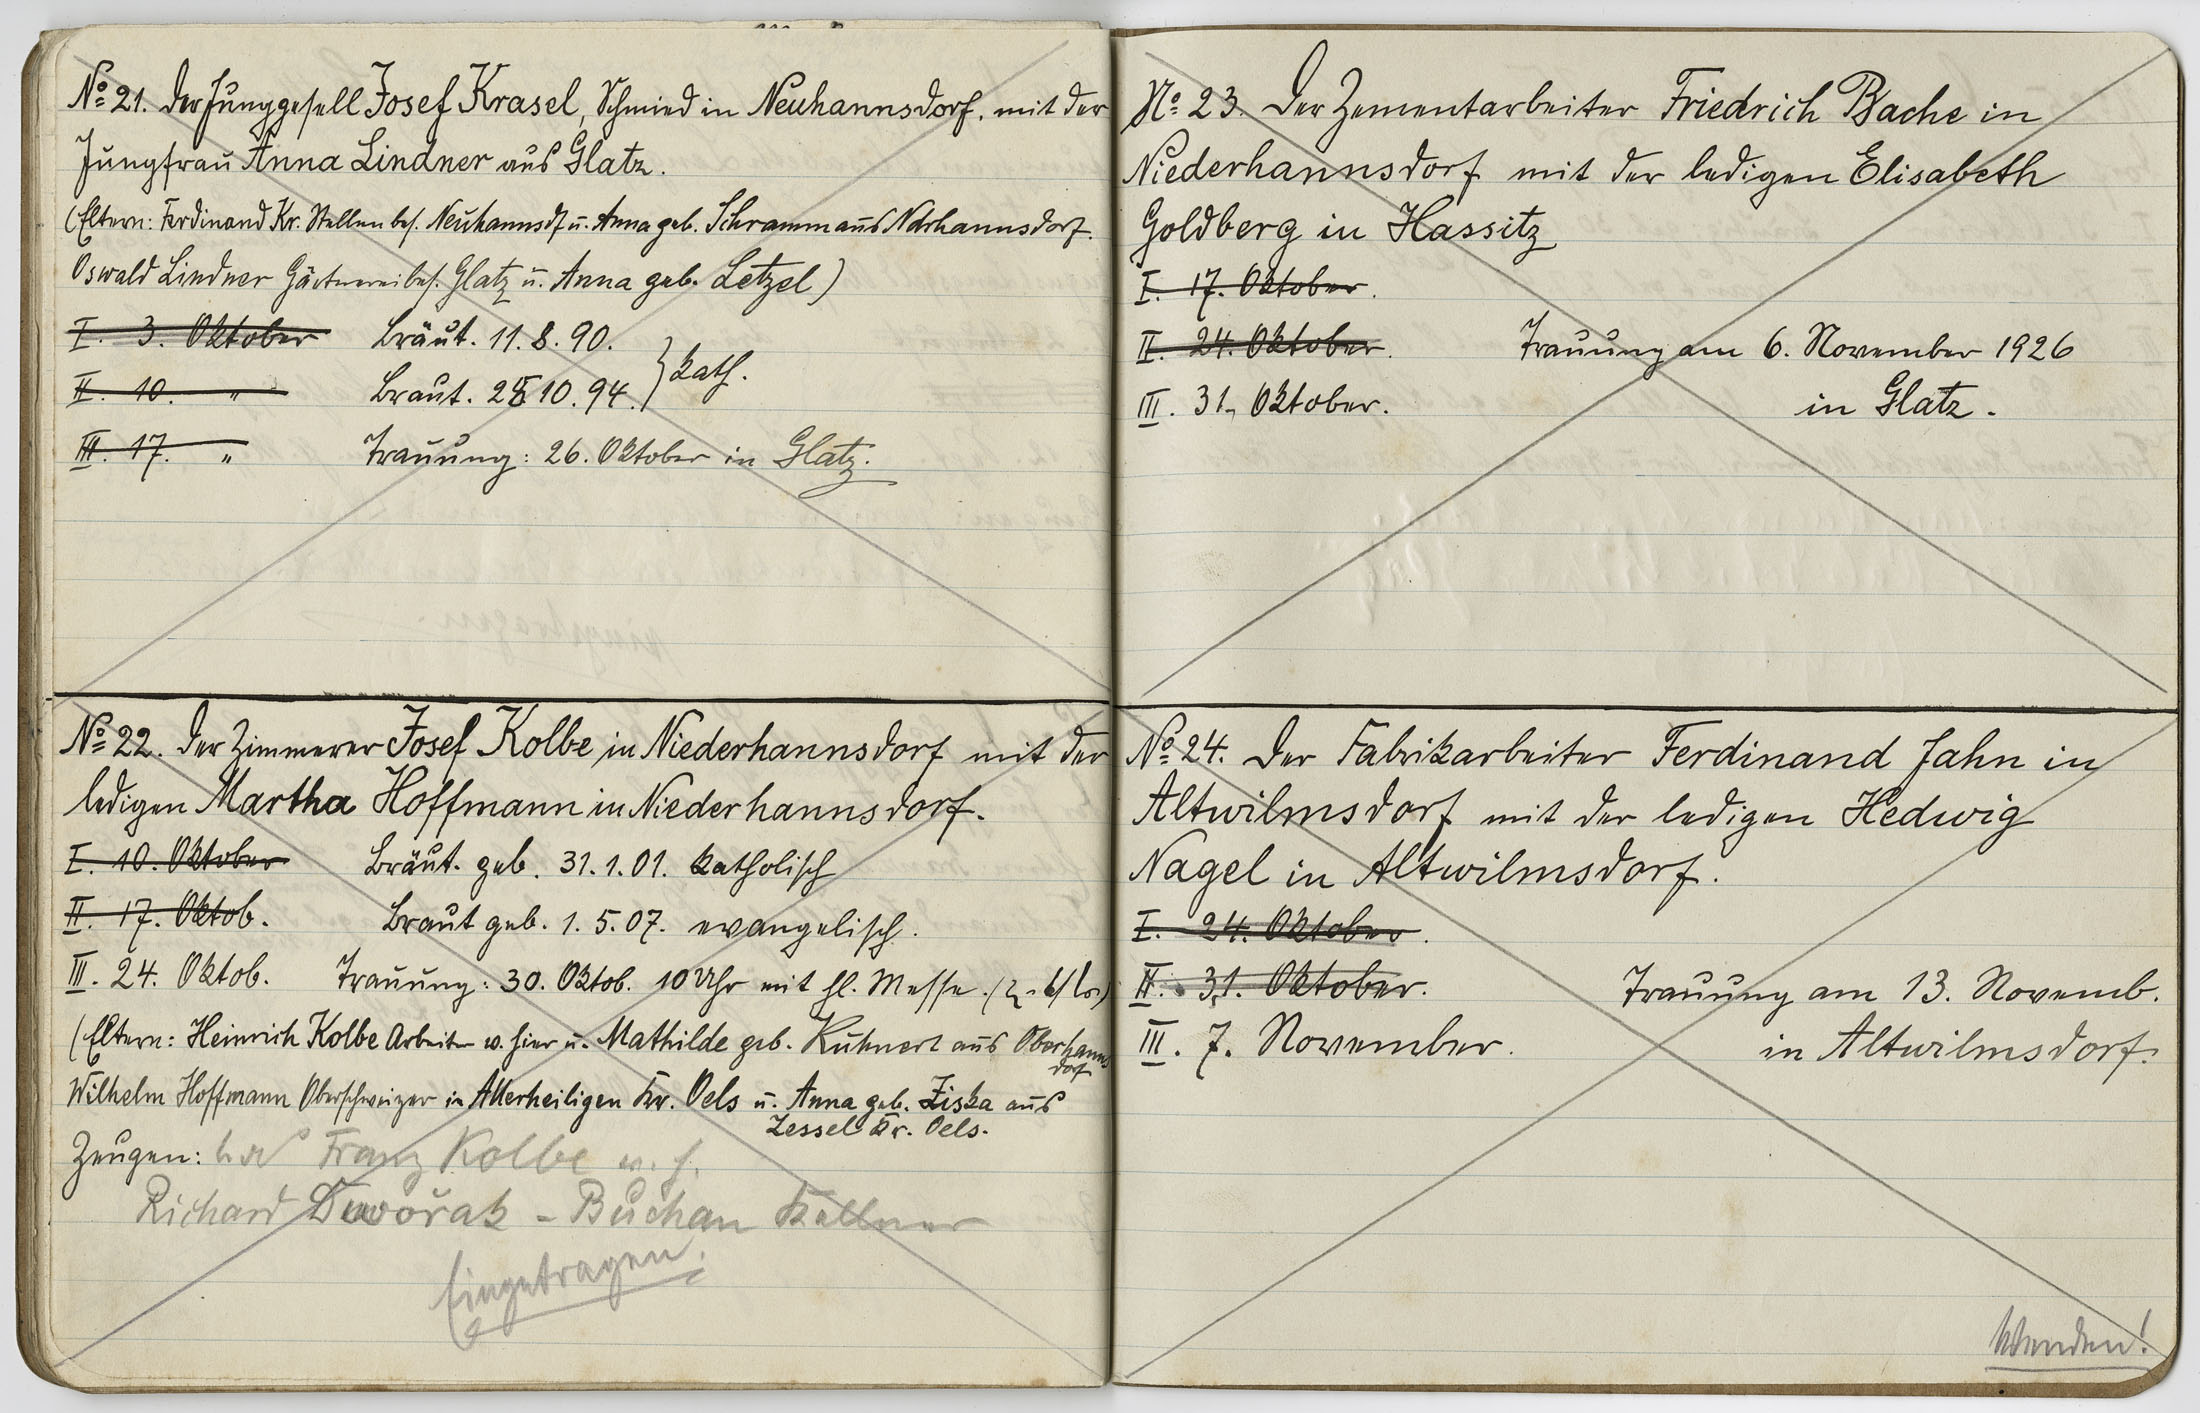 № 21. Der Junggesell Josef Krasel, Schmied in Neuhannsdorf. mit der
Jungfrau Anna Lindner aus Glatz.
(Eltern: Ferdinand Kr. Stellenbes. Neuhannsdf u. Anna geb. Schramm aus Ndrhannsdorf.
Oswald Lindner Gärtnereibes. Glatz u. Anna geb. Letzel)
I. 3. Oktober Bräut. 11.8.90.
} kath.
II. 10. " Braut. 10.94.
III. 17. " Trauung: 26. Oktober in Glatz.
№ 22. Der Zimmerer Josef Kolbe in Niederhannsdorf mit der
ledigen Martha Hoffmann in Niederhannsdorf.
I. 10. Oktober Bräut. geb. 31.1.01. katholisch
II. 17. Oktob. Braut geb. 1.5.07. evangelisch.
III. 24. Oktob. Trauung: 30. Oktob. 10 Uhr mit hl. Messe.
(Eltern: Heinrich Kolbe Arbeiter v. hier u. Mathilde geb. Kuhnert aus Oberhanns
dorf
Wilhelm Hoffmann Oberschweizer in Allerheiligen Kr. Oels u. Anna geb. Ziska aus
Zessel Kr. Oels.
Zeugen: Franz Kolbe v. h.
Richard Dwořak - Buchau Kellner
Eingetragen.
№ 23. Der Zementarbeiter Friedrich Bache in
Niederhannsdorf mit der ledigen Elisabeth
Goldberg in Hassitz
I. 17. Oktober.
II. 24. Oktober. Trauung am 6. November 1926
III. 31. Oktober. in Glatz.
№ 24. Der Fabrikarbeiter Ferdinand Jahn in
Altwilmsdorf mit der ledigen Hedwig
Nagel in Altwilmsdorf.
I. 24. Oktober.
II. 31. Oktober. Trauung am 13. Novemb.
III. 7. November. in Altwilmsdorf.
Wenden!